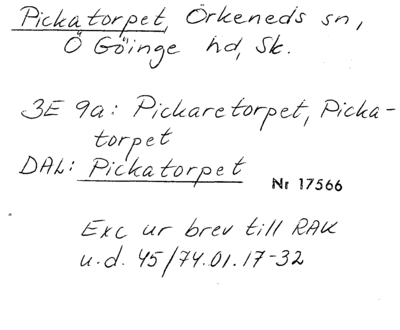 Pickatorpet, Örkeneds sn,
Ö Göinge hd, Sk.
3E 9a: Pickaretorpet, Picka-
torpet
DAL: Pickatorpet Nr 17566
Exc ur brev till RAK
u.d. 45/74.01.17-32